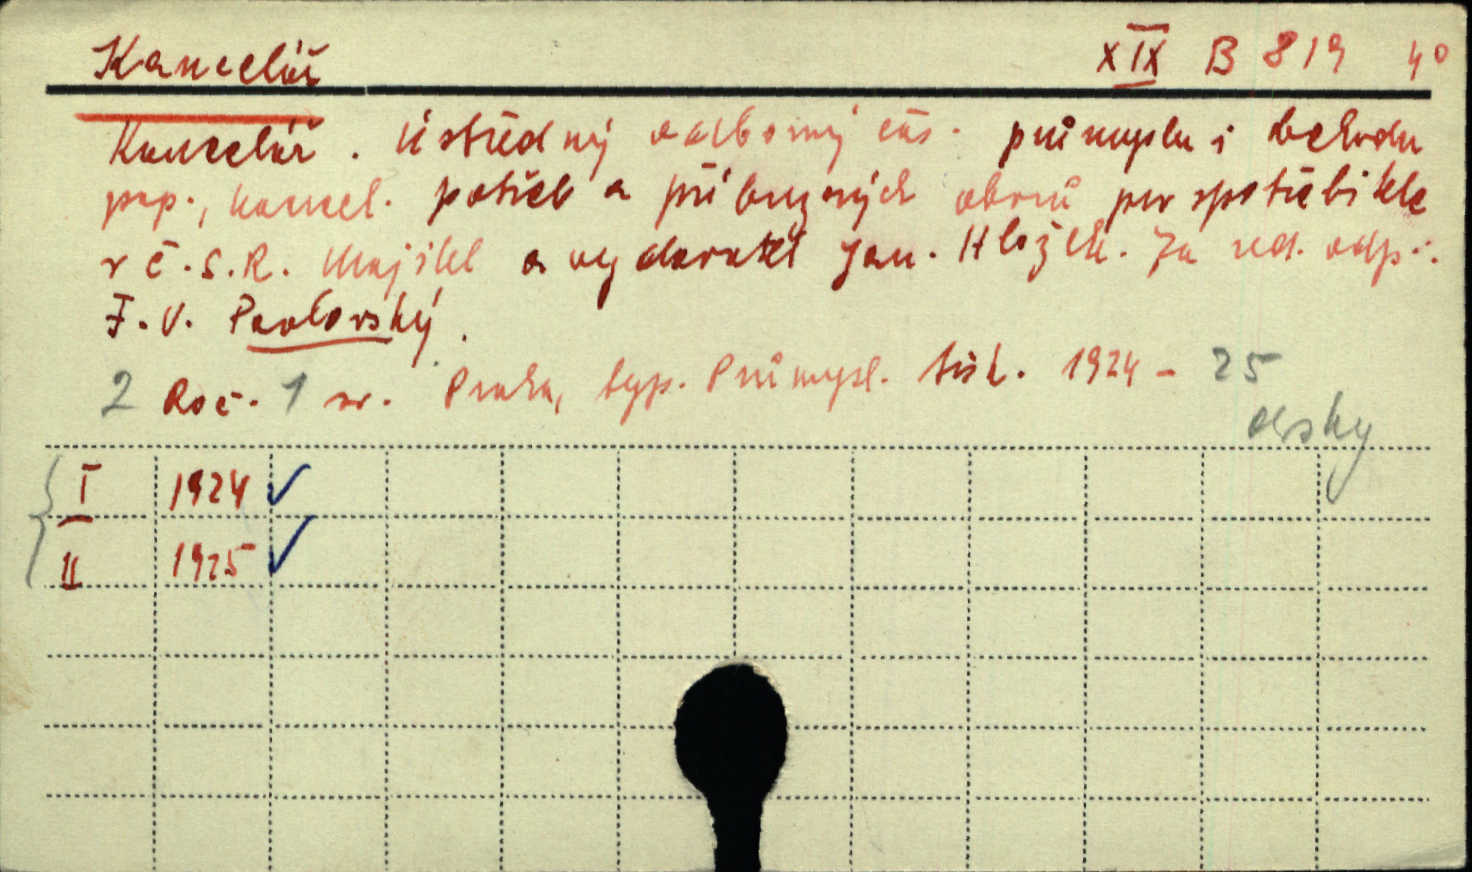 Kancelář XIX B 819 4°
Kancelář. Ústřední odborný čas. průmyslu i obchodu
pap., kancel. potřeb a příbuzných oborů pro spotřebitele
v Č.S.R. Majitel a vydavatel Jan. Hložek. Za red. odp.:
F. V. Pavlovský.
2 Roč. 1 sv. Praha, typ. Průmysl. tisk. 1924-25
I 1924 ✓
II 1925 ✓